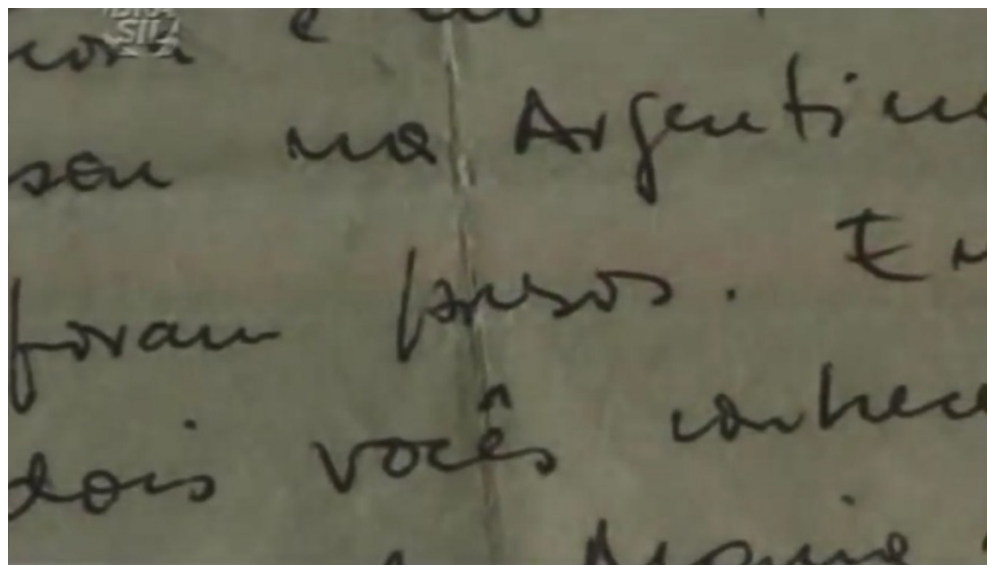 BRA
SIL
sou na Argentina
foram presos. E
dois vocês conhece